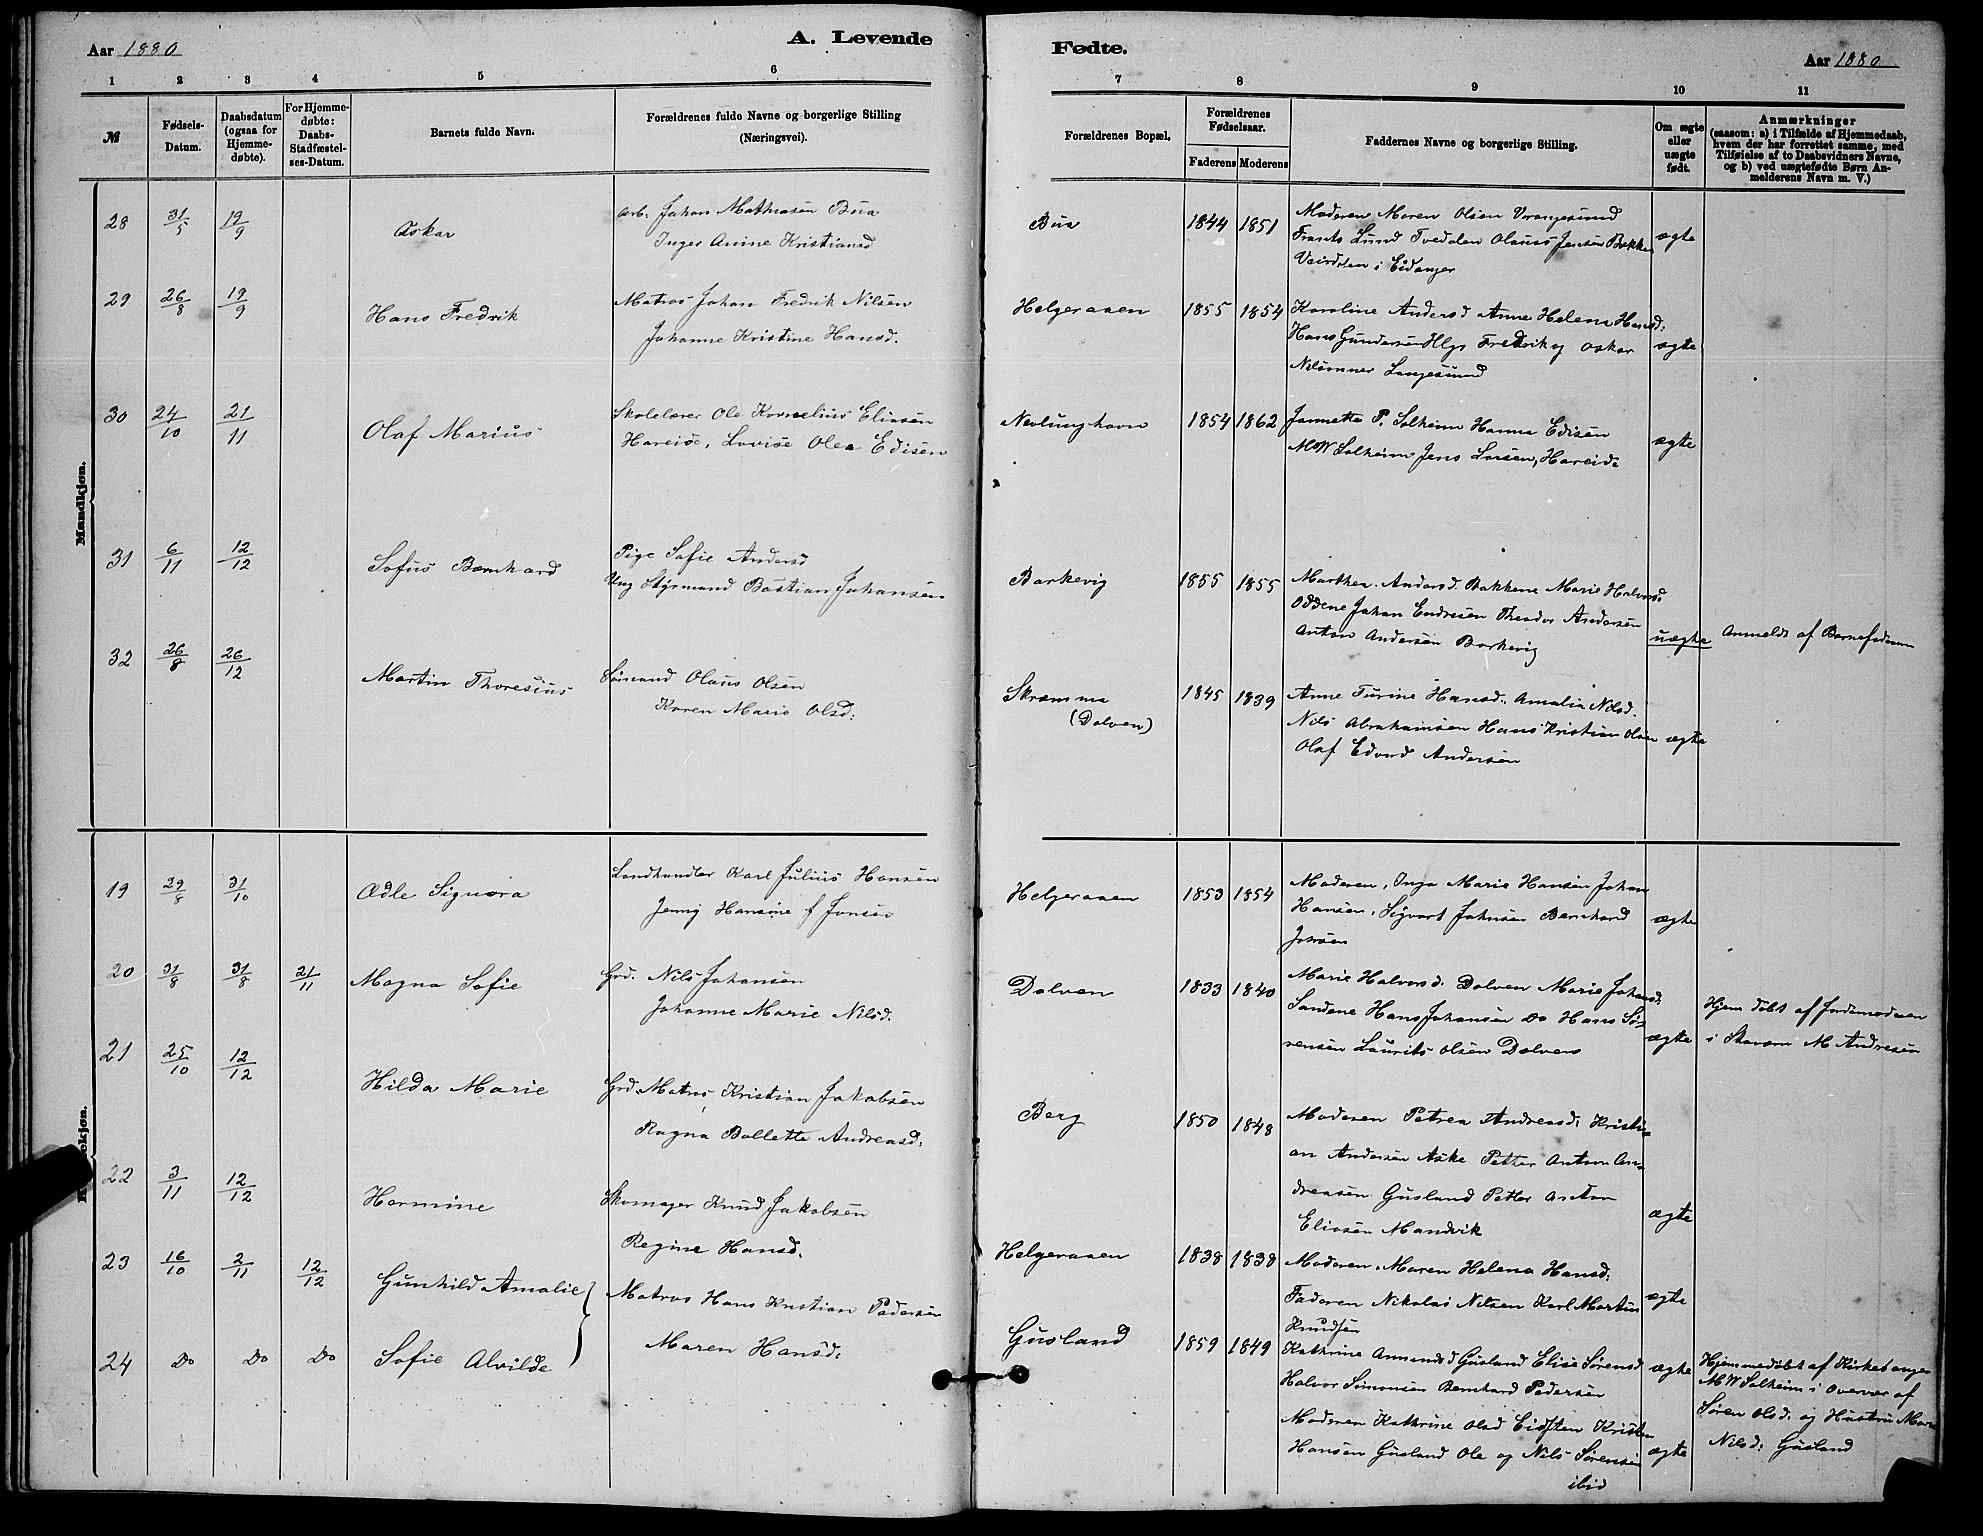 Aar 1880
A. Levende
1 2 3 4 5 6
№
Fødsels-Datum.
Daabsdatum (ogsaa for Hjemmedøbte).
For Hjemmedøbte: Daabs-Stadfæstelses-Datum.
Barnets fulde Navn.
Forældrenes fulde Navne og borgerlige Stilling
(Næringsvei).
Mandkjøn.
28 31/5 19/9 Oskar
Arb. Johan Mathiasen Bua
Inger Anine Kristiansd
29 26/8 19/9 Hans Fredrik
Matros Johan Fredrik Nilsen
Johanne Kristine Hansd.
30 24/10 21/11 Olaf Marius
Skolelærer Ole Kornelius Eliasen
Hareide, Lovise Olea Edisen
31 6/11 12/12 Sofus Bernhard
Pige Sofie Andersd
Ung Styrmand Bastian Johansen
32 26/8 26/12 Martin Thoresius
Sømand Olaus Olsen
Karen Marie Olsd:
19 29/8 31/10 Ædle Signora
Landhandler Karl Julius Hansen
Jenny Hansine f Jonsen
20 31/8 31/8 21/11 Magna Sofie
Grd. Nils Johansen
Johanne Marie Nilsd.
21 25/10 12/12 Hilda Marie
Grd. Matros Kristian Jakobsen
Ragna Bollette Andreasd.
22 3/11 12/12 Hermine
Skomager Knud Jakobsen
Regine Hansd.
23 16/10 2/11 12/12 Gunhild Amalie
Matros Hans Kristian Pedersen
24 Do Do Do Sofie Alvilde
Maren Hansd:
Fødte.
Aar 1880
7 8 9 10 11
Forældrenes Bopæl.
Forældrenes Fødselsaar.
Faderens Moderens
Faddernes Navne og borgerlige Stilling.
Om ægte eller uægte født.
Anmærkninger
(saasom: a) i Tilfælde af Hjemmedaab,
hvem der har forrettet samme, med
Tilføielse af to Daabsvidners Navne,
og b) ved uægtefødte Børn An-
melderens Navn m. V.)
Bua 1844 1851 Moderen Maren Olsen Vrangesund
Frants Lund Tvedalen Olaus Jensen Bakken ægte
i Eidanger
Helgeraaen 1855 1854 Karoline Andersd Anne Helena Hansd:
Hans Gundersen Hlgr Fredrik og Oskar ægte
Nilsønner Langesund
Nevlunghavn 1854 1862 Jannette P. Solheim Hanna Edisen
M W Solheim Jens Larsen, Hareide ægte
Barkevig 1855 1855 Marthea Andersd. Bakkene Marie Halvorsd.
Oddene Johan Endresen Theodor Andersen
Anton Andersen Barkevig uægte Anmeldt af Barnefaderen
Skramma 1845 1839 Anne Turine Hansd. Amalia Nilsd.
(Dolven) Nils Abrahamsen Hans Kristian Olsen ægte
Olaf Edvard Andersen
Helgeraaen 1853 1854 Moderen, Inga Marie Hansen Johan
Hansen, Sigvart Johnsen Bernhard ægte
Johnsen
Dolven 1833 1840 Marie Halvorsd. Dolven Marie Johansd:
Sandene Hans Johansen Do Hans Sø-
rensen Laurits Olsen Dolven ægte
Hjem døbt af Jordemoderen
i Stavern M Andresen
Berg 1850 1848 Moderen Petrea Andreasd. Kristi-
an Andersen Aske Petter Anton An-
dreasen Gusland Petter Anton ægte
Eliasen Mandvik
Helgeraaen 1838 1838 Moderen. Maren Helena Hansd:
Faderen Nikolai Nilsen Karl Martin ægte
Knudsen
Gusland 1859 1849 Kathrine Amundsd Gusland Elise Sørensd ægte
Halvor Simonsen Bernhard Pedersen
Moderen Kathrine Olsd Eidsten Kristen
Hansen Gusland Ole og Nils Sørensen ægte
ibid
Hjemmedøbt af Kirkesanger
M W Solheim i Overvær af
Søren Olsd: og Hustru Maren
Nilsd: Gusland